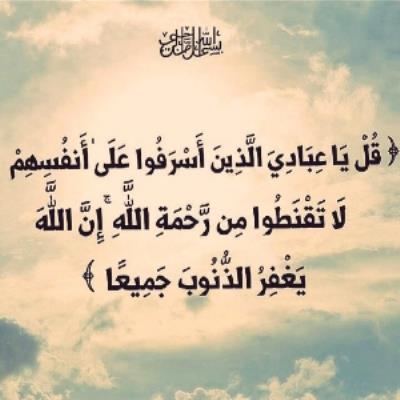 بسم الله الرحمن الرحيم
﴿ قُلْ يَا عِبَادِيَ الَّذِينَ أَسْرَفُوا عَلَىٰ أَنفُسِهِمْ
لَا تَقْنَطُوا مِن رَّحْمَةِ اللَّهِ ۚ إِنَّ اللَّهَ
يَغْفِرُ الذُّنُوبَ جَمِيعًا ﴾